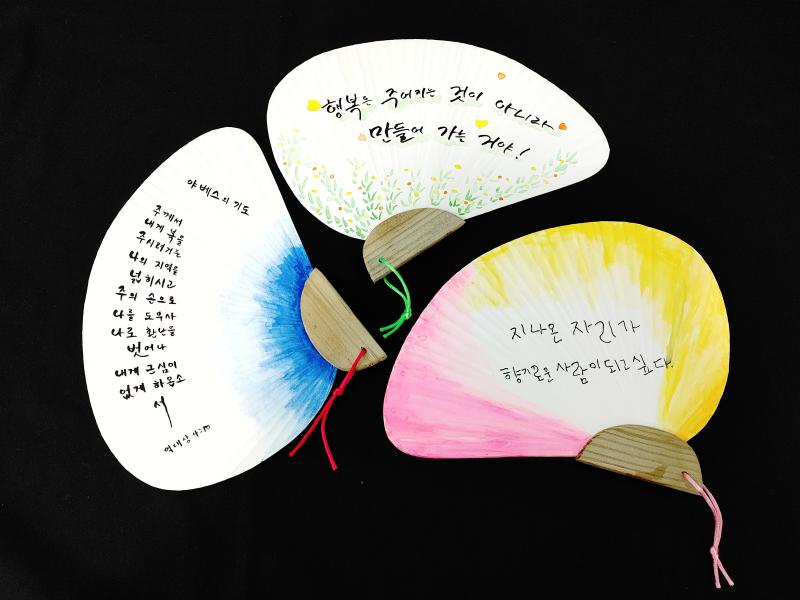 행복은 주어지는 것이 아니라
만들어 가는 거야!
야베스의 기도
주께서
내게 복을
주시려거든
나의 지역을
넓히시고
주의 손으로
나를 도우사
나로 환난을
벗어나
내게 근심이
없게 하옵소
서
역대상 4:10
지나온 자리가
향기로운 사람이 되고 싶다.